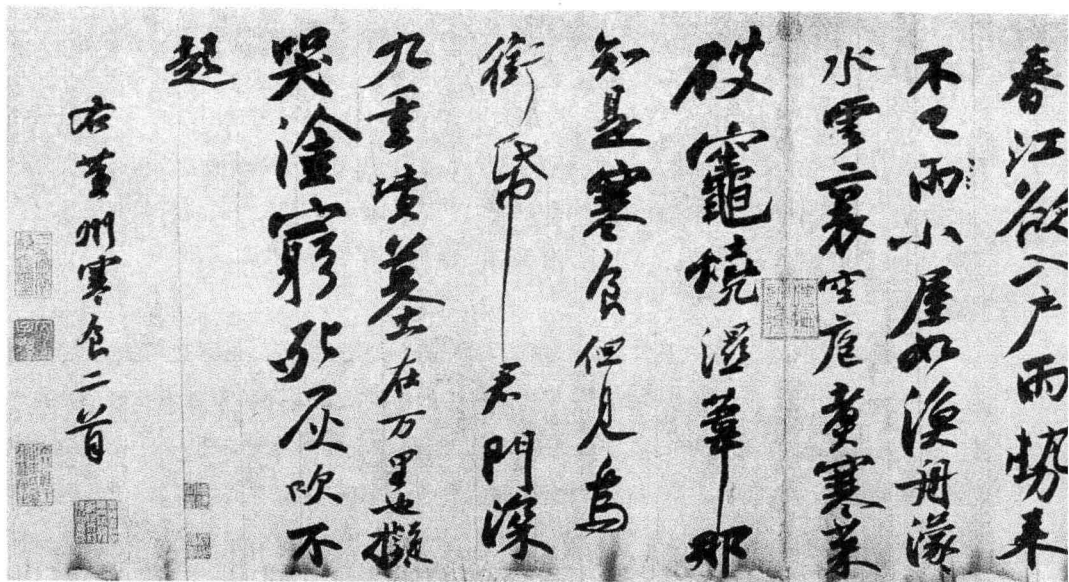 春江欲入户雨勢来
不已雨小屋如漁舟濛〻
水雲裏空庖煑寒菜
破竈燒濕葦那
知是寒食但見烏
銜帋君門深
九重墳墓在万里也擬
哭塗窮死灰吹不
起
右黄州寒食二首